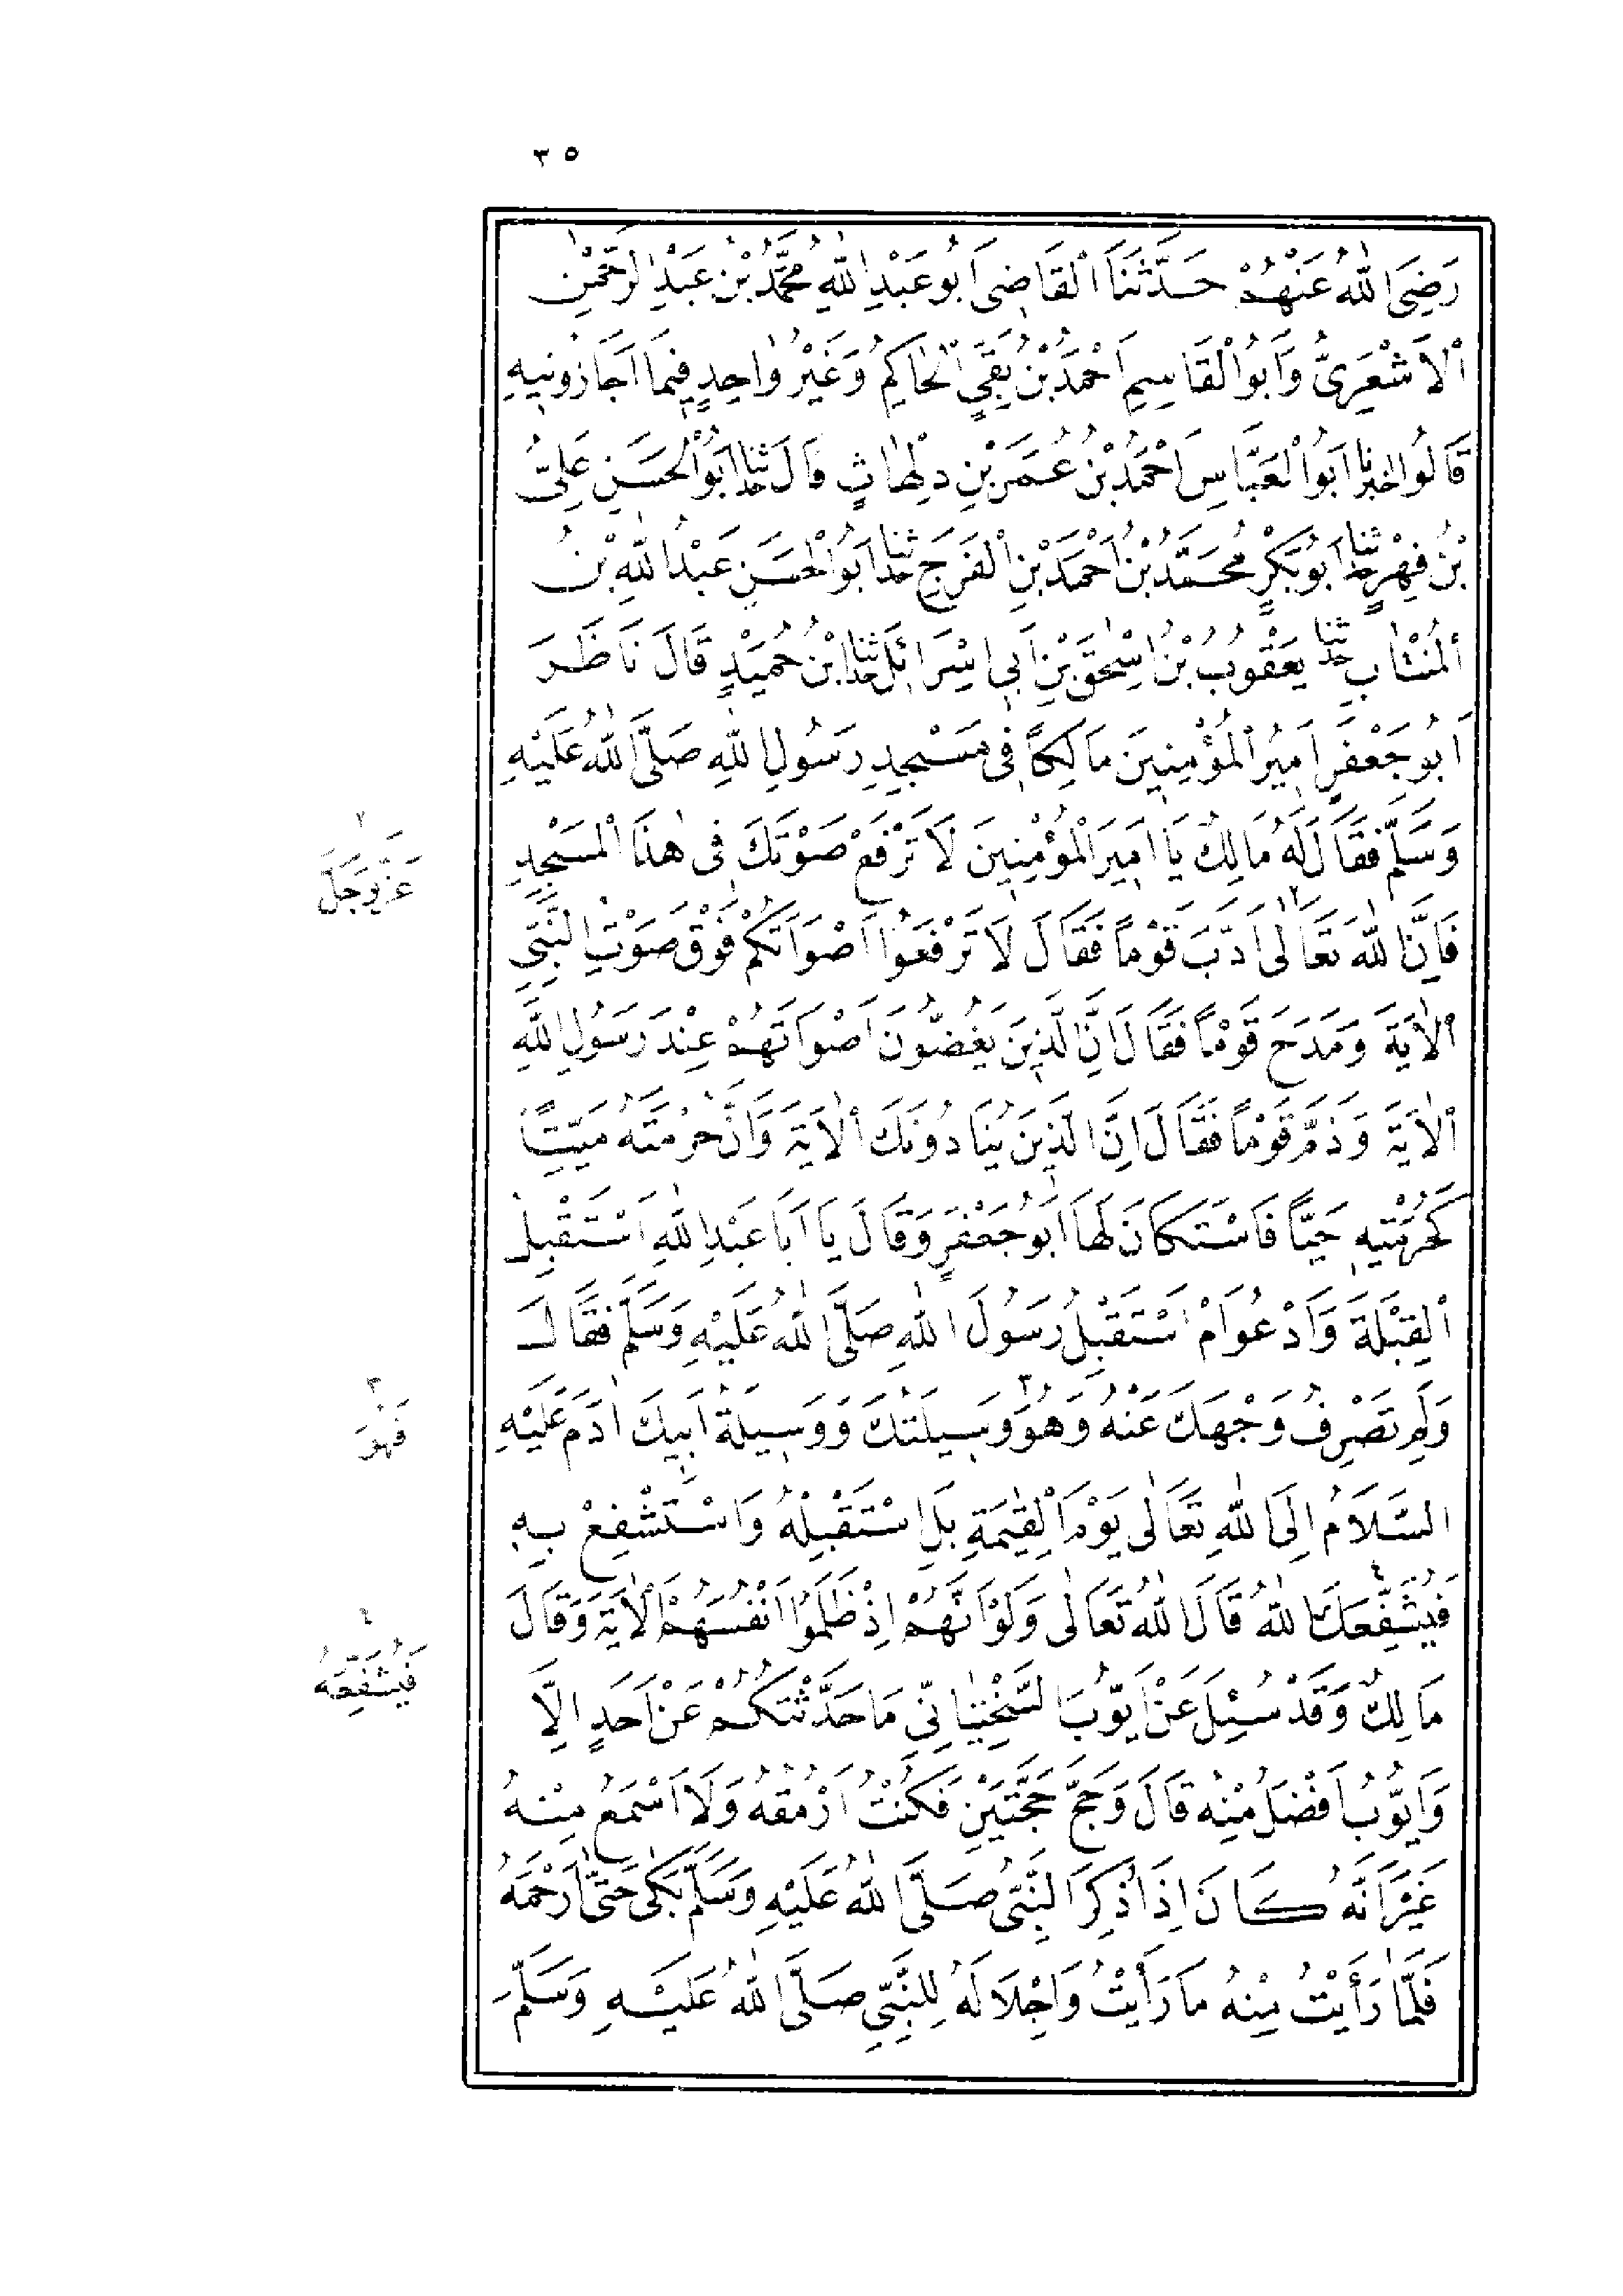 ٣٥
رَضِيَ اللّٰهُ عَنْهُمْ حَدَّثَنَا الْقَاضِى اَبُو عَبْدِ اللّٰهِ مُحَمَّدُ بْنُ عَبْدِ الرَّحْمٰنِ
الْاَشْعَرِىُّ وَاَبُو الْقَاسِمِ اَحْمَدُ بْنُ بَقِىٍّ الْحَاكِمُ وَغَيْرُ وَاحِدٍ فِيمَا اَجَازُونِيهِ
قَالُوا اخبرنا اَبُو الْعَبَّاسِ اَحْمَدُ بْنُ عُمَرَ بْنِ دِلْهَاثٍ قَالَ حدثنا اَبُو الْحَسَنِ عَلِىُّ
بْنُ فِهْرٍ حدثنا اَبُو بَكْرٍ مُحَمَّدُ بْنُ اَحْمَدَ بْنِ الْفَرَجِ حدثنا اَبُو الْحَسَنِ عَبْدُ اللّٰهِ بْنُ
الْمُنْتَابِ حدثنا يَعْقُوبُ بْنُ اِسْحٰقَ بْنِ اَبِى اِسْرَائِلَ حدثنا ابْنُ حُمَيْدٍ قَالَ نَاظَرَ
اَبُو جَعْفَرٍ اَمِيرُ الْمُؤْمِنِينَ مَالِكًا فِى مَسْجِدِ رَسُولِ اللّٰهِ صَلَّى اللّٰهُ عَلَيْهِ
وَسَلَّمَ فَقَالَ لَهُ مَالِكٌ يَا اَمِيرَ الْمُؤْمِنِينَ لَا تَرْفَعْ صَوْتَكَ فِى هٰذَا الْمَسْجِدِ
فَاِنَّ اللّٰهَ تَعَالٰى٢ اَدَّبَ قَوْمًا فَقَالَ لَا تَرْفَعُوا اَصْوَاتَكُمْ فَوْقَ صَوْتِ النَّبِىِّ
الْاٰيَةَ وَمَدَحَ قَوْمًا فَقَالَ اِنَّ الَّذِينَ يَغُضُّونَ اَصْوَاتَهُمْ عِنْدَ رَسُولِ اللّٰهِ
الْاٰيَةَ وَذَمَّ قَوْمًا فَقَالَ اِنَّ الَّذِينَ يُنَادُونَكَ الْاٰيَةَ وَاِنَّ حُرْمَتَهُ مَيِّتًا
كَحُرْمَتِهِ حَيًّا فَاسْتَكَانَ لَهَا اَبُو جَعْفَرٍ وَقَالَ يَا اَبَا عَبْدِ اللّٰهِ اَسْتَقْبِلُ
الْقِبْلَةَ وَاَدْعُو اَمْ اَسْتَقْبِلُ رَسُولَ اللّٰهِ صَلَّى اللّٰهُ عَلَيْهِ وَسَلَّمَ فَقَالَ
وَلِمَ تَصْرِفُ وَجْهَكَ عَنْهُ وَهُوَ٣ وَسِيلَتُكَ وَوَسِيلَةُ اَبِيكَ اٰدَمَ عَلَيْهِ
السَّلَامُ اِلَى اللّٰهِ تَعَالٰى يَوْمَ الْقِيٰمَةِ بَلِ اسْتَقْبِلْهُ وَاسْتَشْفِعْ بِهِ
فَيُشَفِّعَكَ٤ اللّٰهُ قَالَ اللّٰهُ تَعَالٰى وَلَوْ اَنَّهُمْ اِذْ ظَلَمُوا اَنْفُسَهُمْ الْاٰيَةَ وَقَالَ
مَالِكٌ وَقَدْ سُئِلَ عَنْ اَيُّوبَ السَّخْتِيَانِىِّ مَا حَدَّثْتُكُمْ عَنْ اَحَدٍ اِلَّا
وَاَيُّوبُ اَفْضَلُ مِنْهُ قَالَ وَحَجَّ حَجَّتَيْنِ فَكُنْتُ اَرْمُقُهُ وَلَا اَسْمَعُ مِنْهُ
غَيْرَ اَنَّهُ كَانَ اِذَا ذُكِرَ النَّبِىُّ صَلَّى اللّٰهُ عَلَيْهِ وَسَلَّمَ بَكٰى حَتّٰى اَرْحَمَهُ
فَلَمَّا رَأَيْتُ مِنْهُ مَا رَأَيْتُ وَاِجْلَالَهُ لِلنَّبِىِّ صَلَّى اللّٰهُ عَلَيْهِ وَسَلَّمَ
٢
عَزَّ وَجَلَّ
٣
فَهُوَ
٤
فَيُشَفِّعَهُ